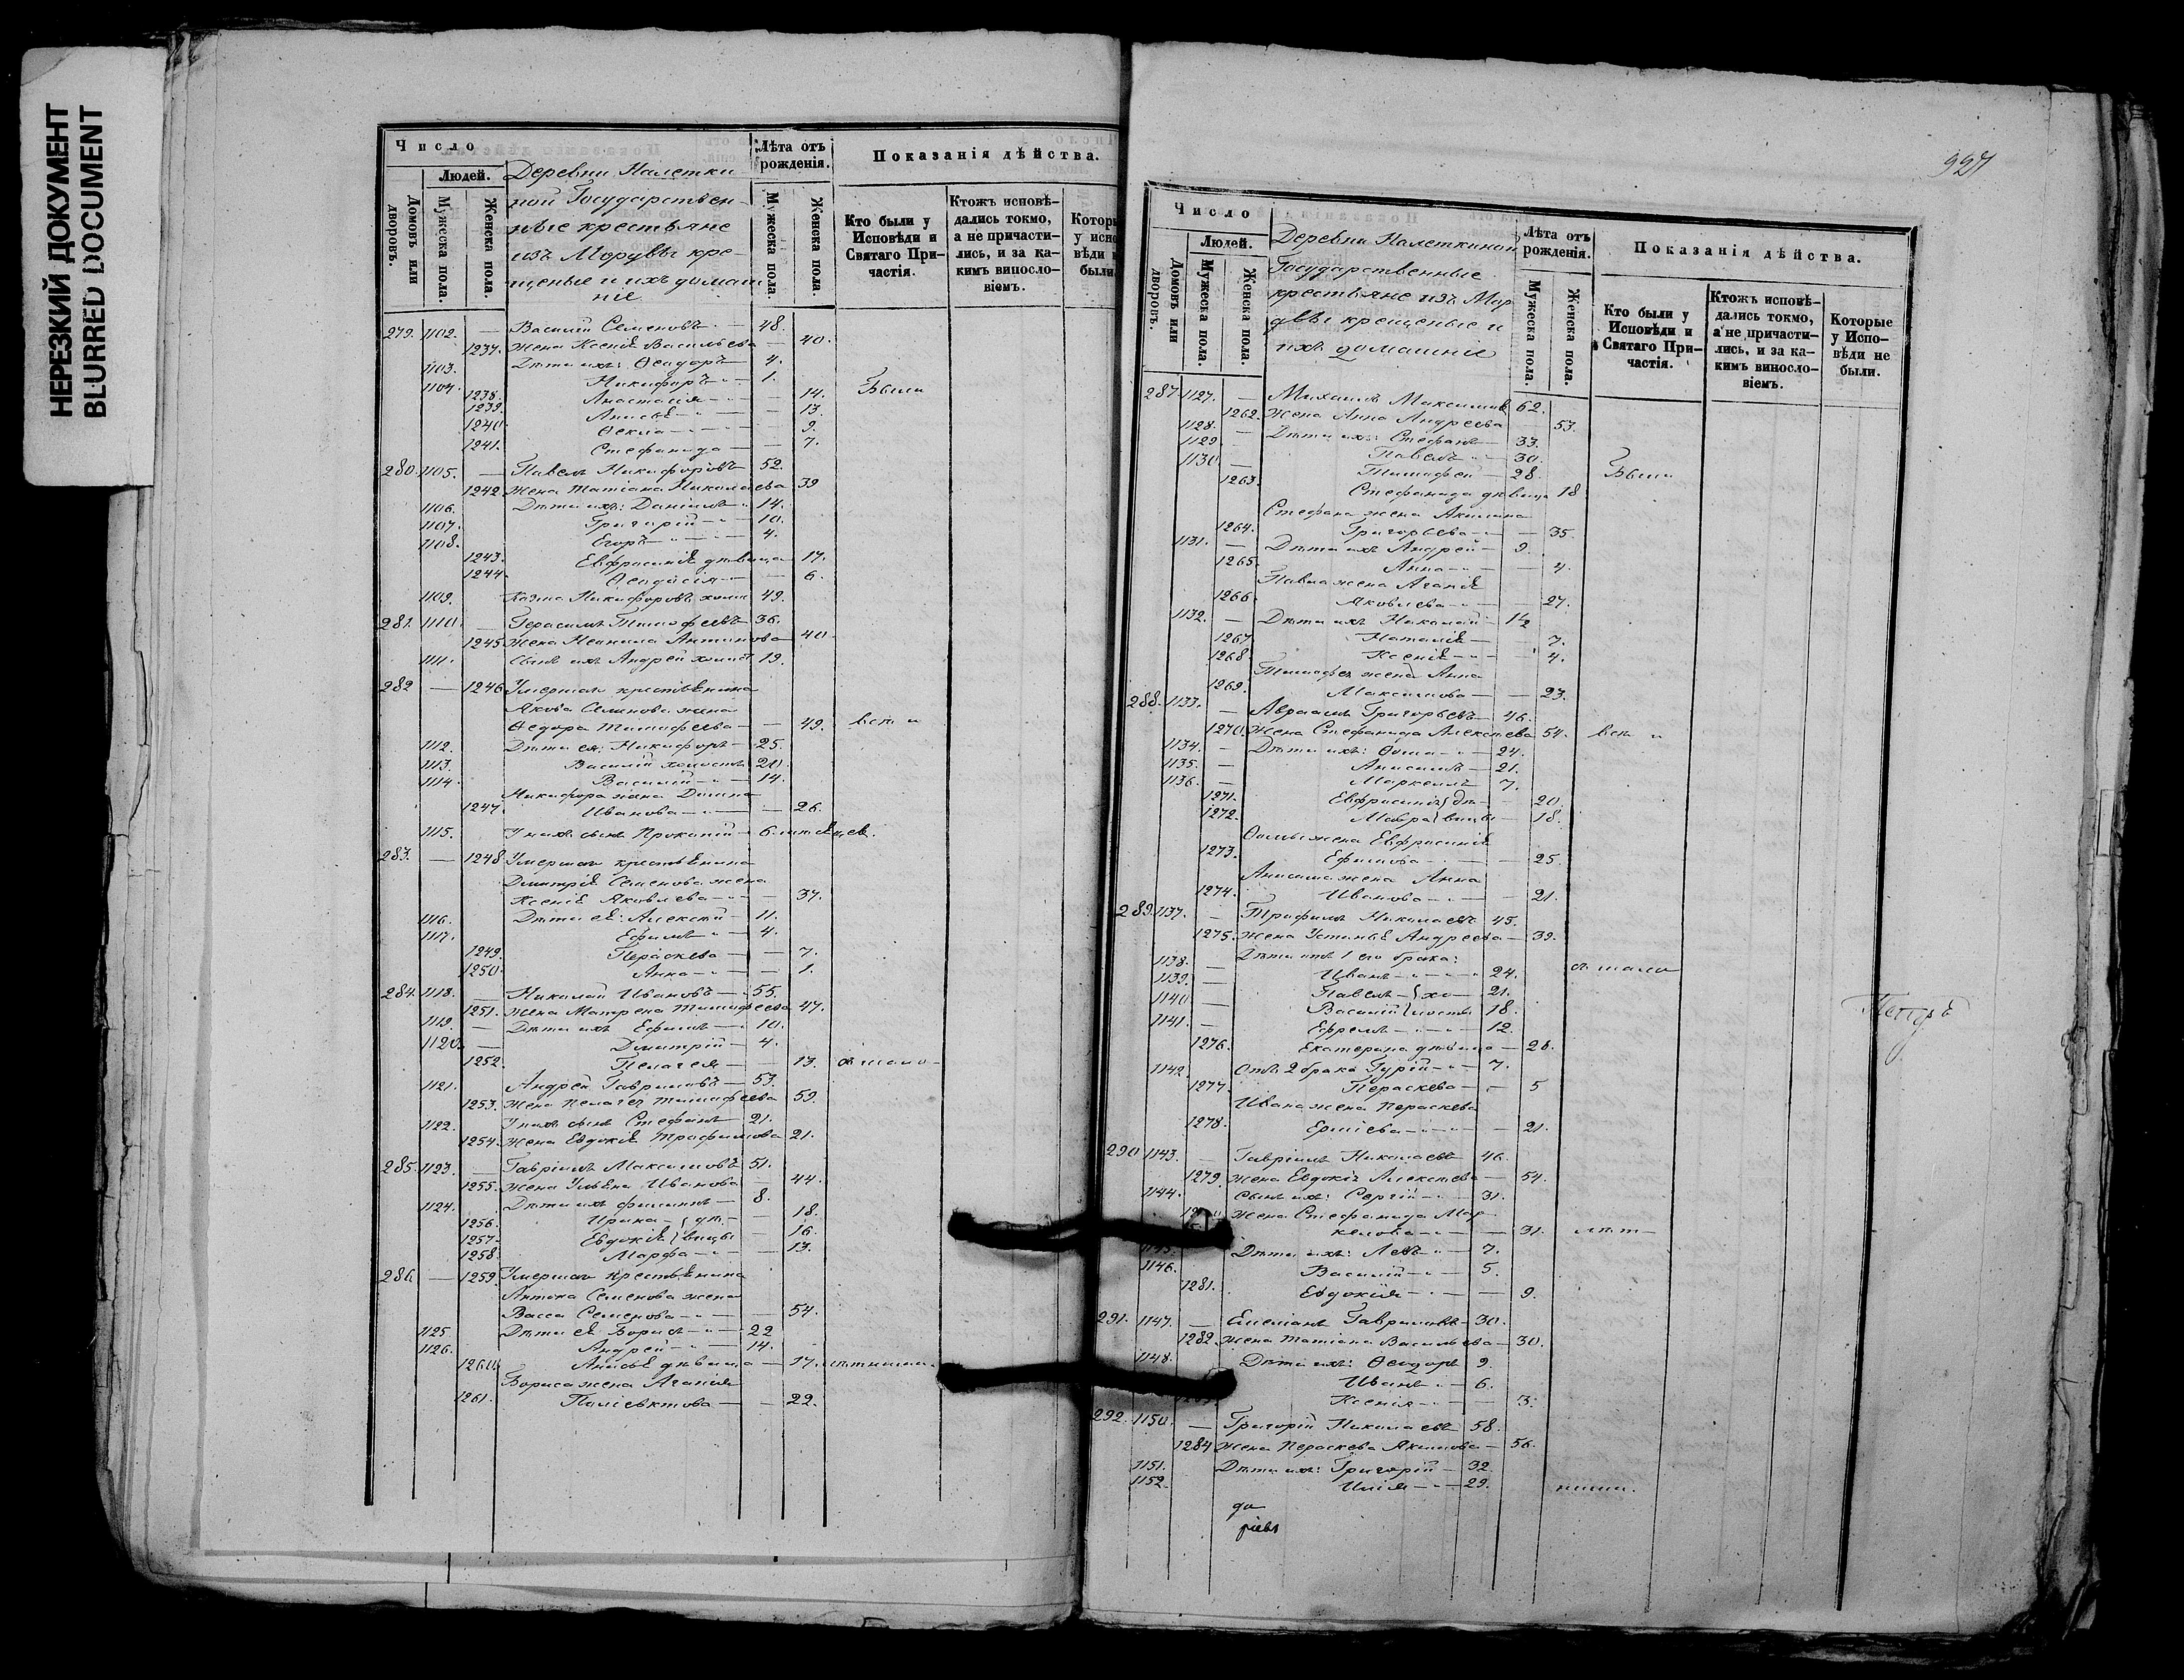 НЕРЕЗКИЙ ДОКУМЕНТ
BLURRED DOCUMENT
Число
Людей.
Домовъ или дворовъ.
Мужеска пола.
Женска пола.
Деревни Налетки
ной Государствен-
ные крестьяне
изъ Мордвы кре
щеные и ихъ домаш
ніе
Лѣта отъ рожденія.
Мужеска пола.
Женска пола.
Показанія дѣйства.
Кто были у Исповѣди и Святаго Причастія.
Ктожъ исповѣдались токмо, а не причастились, и за какимъ винословіемъ.
279. 1102. — Василій Семеновъ — 48.
1237. Жена Ксенія Васильева — 40.
1103. Дѣти ихъ: Ѳеодоръ — 4.
1104. Никифоръ — 1.
1238. Анастасія — 14. Были
1239. Анисья — 13.
1240. Ѳекла — 9.
1241. Стефанида — 7.
280. 1105. — Павелъ Никифоровъ 52.
1242. Жена Татіана Николаева 39
1106. Дѣти ихъ: Даніилъ 14.
1107. Григорій — 10.
1108. Егоръ — 4.
1243. Евфросинія дѣвица 17.
1244. Ѳеодосія — 6.
1109. Козма Никифоровъ холост 49.
281. 1110. — Герасимъ Тимофеевъ 36.
1245. Жена Неонила Антонова 40
1111. Сынъ ихъ Андрей холост 19.
282 — 1246. Умершаго крестьянина
Якова Семенова жена
Ѳедора Тимофеева — 49.
1112. Дѣти ея: Никифоръ — 25.
1113. Василій холостъ 20.
1114. Василій — 14.
Никифора жена Домна
1247. Иванова — 26.
1115. У нихъ сынъ Прокопій — 6. мѣсяцев.
283. — 1248. Умершаго крестьянина
Дмитрія Семенова жена
Ксенія Яковлева — 37.
1116. Дѣти ея: Алексѣй — 11.
1117. Ефимъ — 4.
1249. Параскева — 7.
1250. Анна — 1.
284. 1118. — Николай Ивановъ — 55.
1251. Жена Матрена Тимофеева 47.
1119. — Дѣти ихъ Ефимъ — 10.
1120. — Дмитрій — 4.
1252. Пелагея — 13.
1121. Андрей Гавриловъ — 53.
1253. Жена Пелагея Тимофеева 59.
1122. У нихъ сынъ Стефанъ 21.
1254. Жена Евдокія Трофимова 21.
285. 1123. — Гавріилъ Максимовъ 51.
1255. Жена Ульяна Иванова 44.
1124. Дѣти ихъ Филиппъ — 8.
1256. Ирина — дѣ — 18.
1257. Евдокія вицы — 16.
1258. Марфа — 13.
286. — 1259. Умершаго крестьянина
Антона Семенова жена
Васса Семенова — 54.
1125. Дѣти ея Борисъ — 22
1126. Андрей — 14.
1260. Анисья дѣвица — 17.
Бориса жена Агафія
1261. Поліевктова — 22.
927
Число
Людей.
Домовъ или дворовъ.
Мужеска пола.
Женска пола.
Деревни Налеткиной
Государственные
крестьяне изъ Мор
двы крещеные и
ихъ домашніе
Лѣта отъ рожденія.
Мужеска пола.
Женска пола.
Показанія дѣйства.
Кто были у Исповѣди и Святаго Причастія.
Ктожъ исповѣдались токмо, а не причастились, и за какимъ винословіемъ.
Которые у Исповѣди не были.
287. 1127. — Михаилъ Максимов 62.
1262. Жена Анна Андреева 53.
1128. — Дѣти ихъ: Стефанъ — 33.
1129. — Павелъ — 30.
1130. — Тимофей — 28. Были
1263. Стефанида дѣвица 18
Стефана жена Акилина
1264. Григорьева — 35.
1131. — Дѣти ихъ Андрей — 9.
1265. Анна — 4.
Павла жена Агафія
1266. Яковлева — 27.
1132. — Дѣти ихъ Николай 1½
1267. Наталія — 7.
1268. Ксенія — 4.
Тимофея жена Анна
1269. Максимова — 23.
288. 1133. — Авраамъ Григорьевъ — 46.
1270. Жена Стефанида Алексѣева 54.
1134. — Дѣти ихъ: Ѳома — 24.
1135. — Анисимъ — 21.
1136. — Маркелъ 7.
1271. Евфросинія дѣ — 20.
1272. Мавра вицы — 18.
Ѳомы жена Евфросинія
1273. Ефимова — 25.
Анисима жена Анна
1274. Иванова — 21.
289. 1137. — Трофимъ Николаевъ 45.
1275. Жена Устинья Андреева — 39.
Дѣти отъ 1 его брака:
1138. — Иванъ — 24.
1139. — Павелъ — хо — 21.
1140. — Василій лосты 18.
1141. — Ефремъ — 12.
1276. Екатерина дѣвица — 28.
1142. Отъ 2 брака Гурій — 7.
1277. Параскева — 5
Ивана жена Параскева
1278. Ермиева — 21.
290. 1143. — Гавріилъ Николаевъ 46.
1279. Жена Евдокія Алексѣева — 54.
1144. Сынъ ихъ: Сергій — 31.
Жена Стефанида Мар
келова — 31.
1145. Дѣти ихъ: Левъ — 7.
1146. Василій — 5.
1281. Евдокія — 9.
291. 1147. — Емеліанъ Гавриловъ — 30.
1282. Жена Татіана Васильева — 30.
1148. Дѣти ихъ: Ѳеодоръ 9.
Иванъ — 6.
Ксенія — 3.
292. 1150. — Григорій Николаевъ 58.
1284. Жена Параскева Якимова — 56.
1151. Дѣти ихъ: Григорій — 32.
1152. Илія — 29.